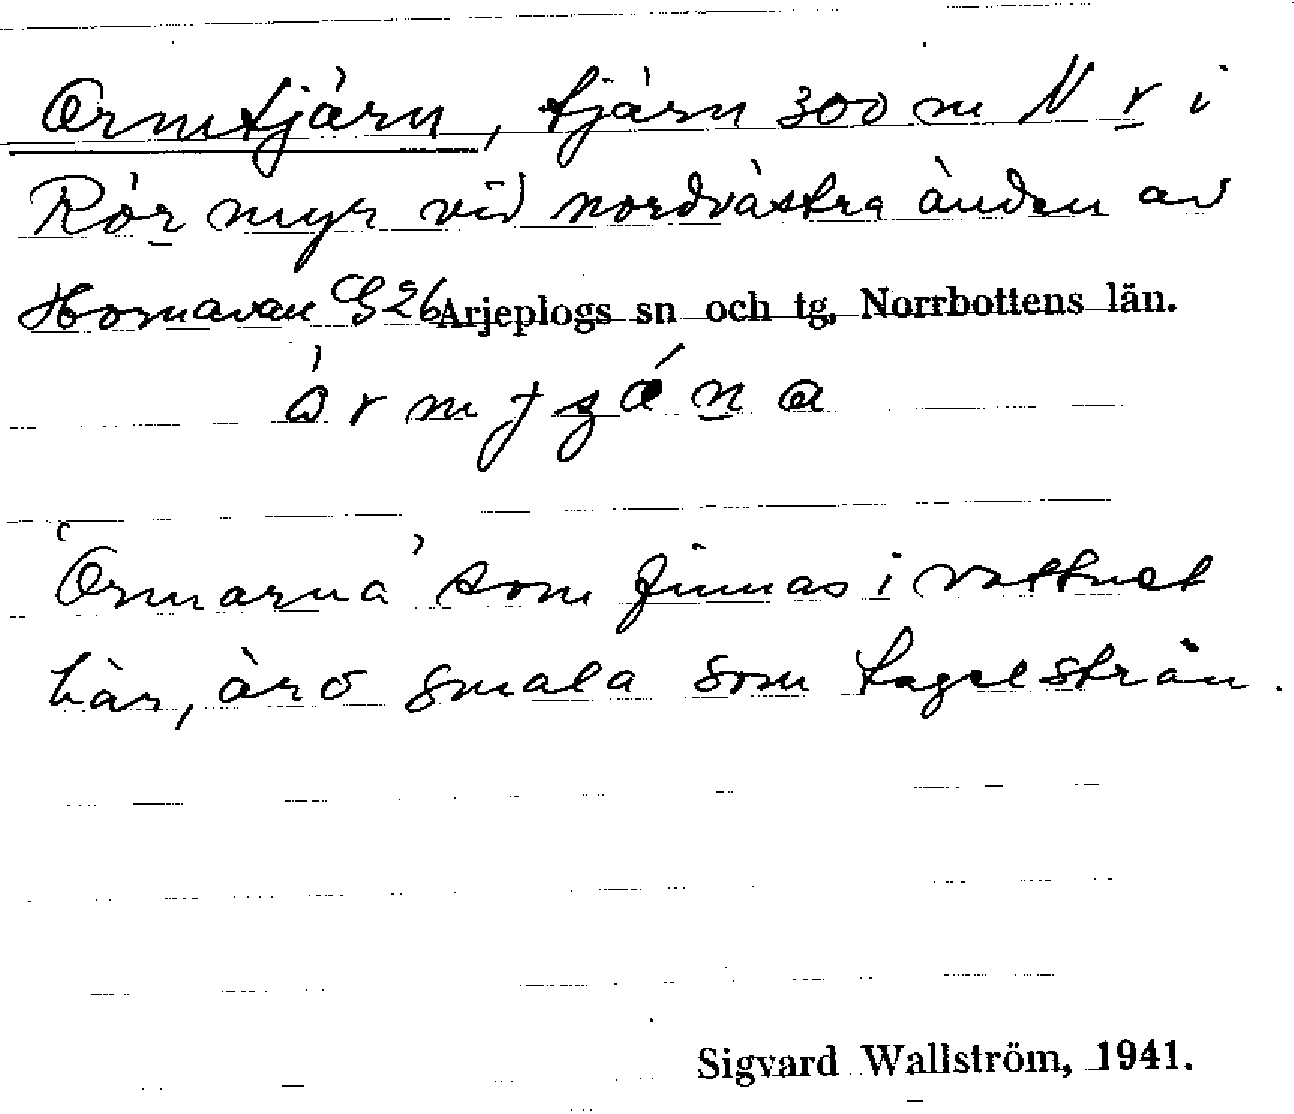 Ormtjärn, tjärn 300 m N r i
Rörmyr vid nordvästra änden av
Hornavan G 26 Arjeplogs sn och tg, Norrbottens län.
Ormarna som finnas i vattnet
här, äro smala som tagelstrån.
Sigvard Wallström, 1941.